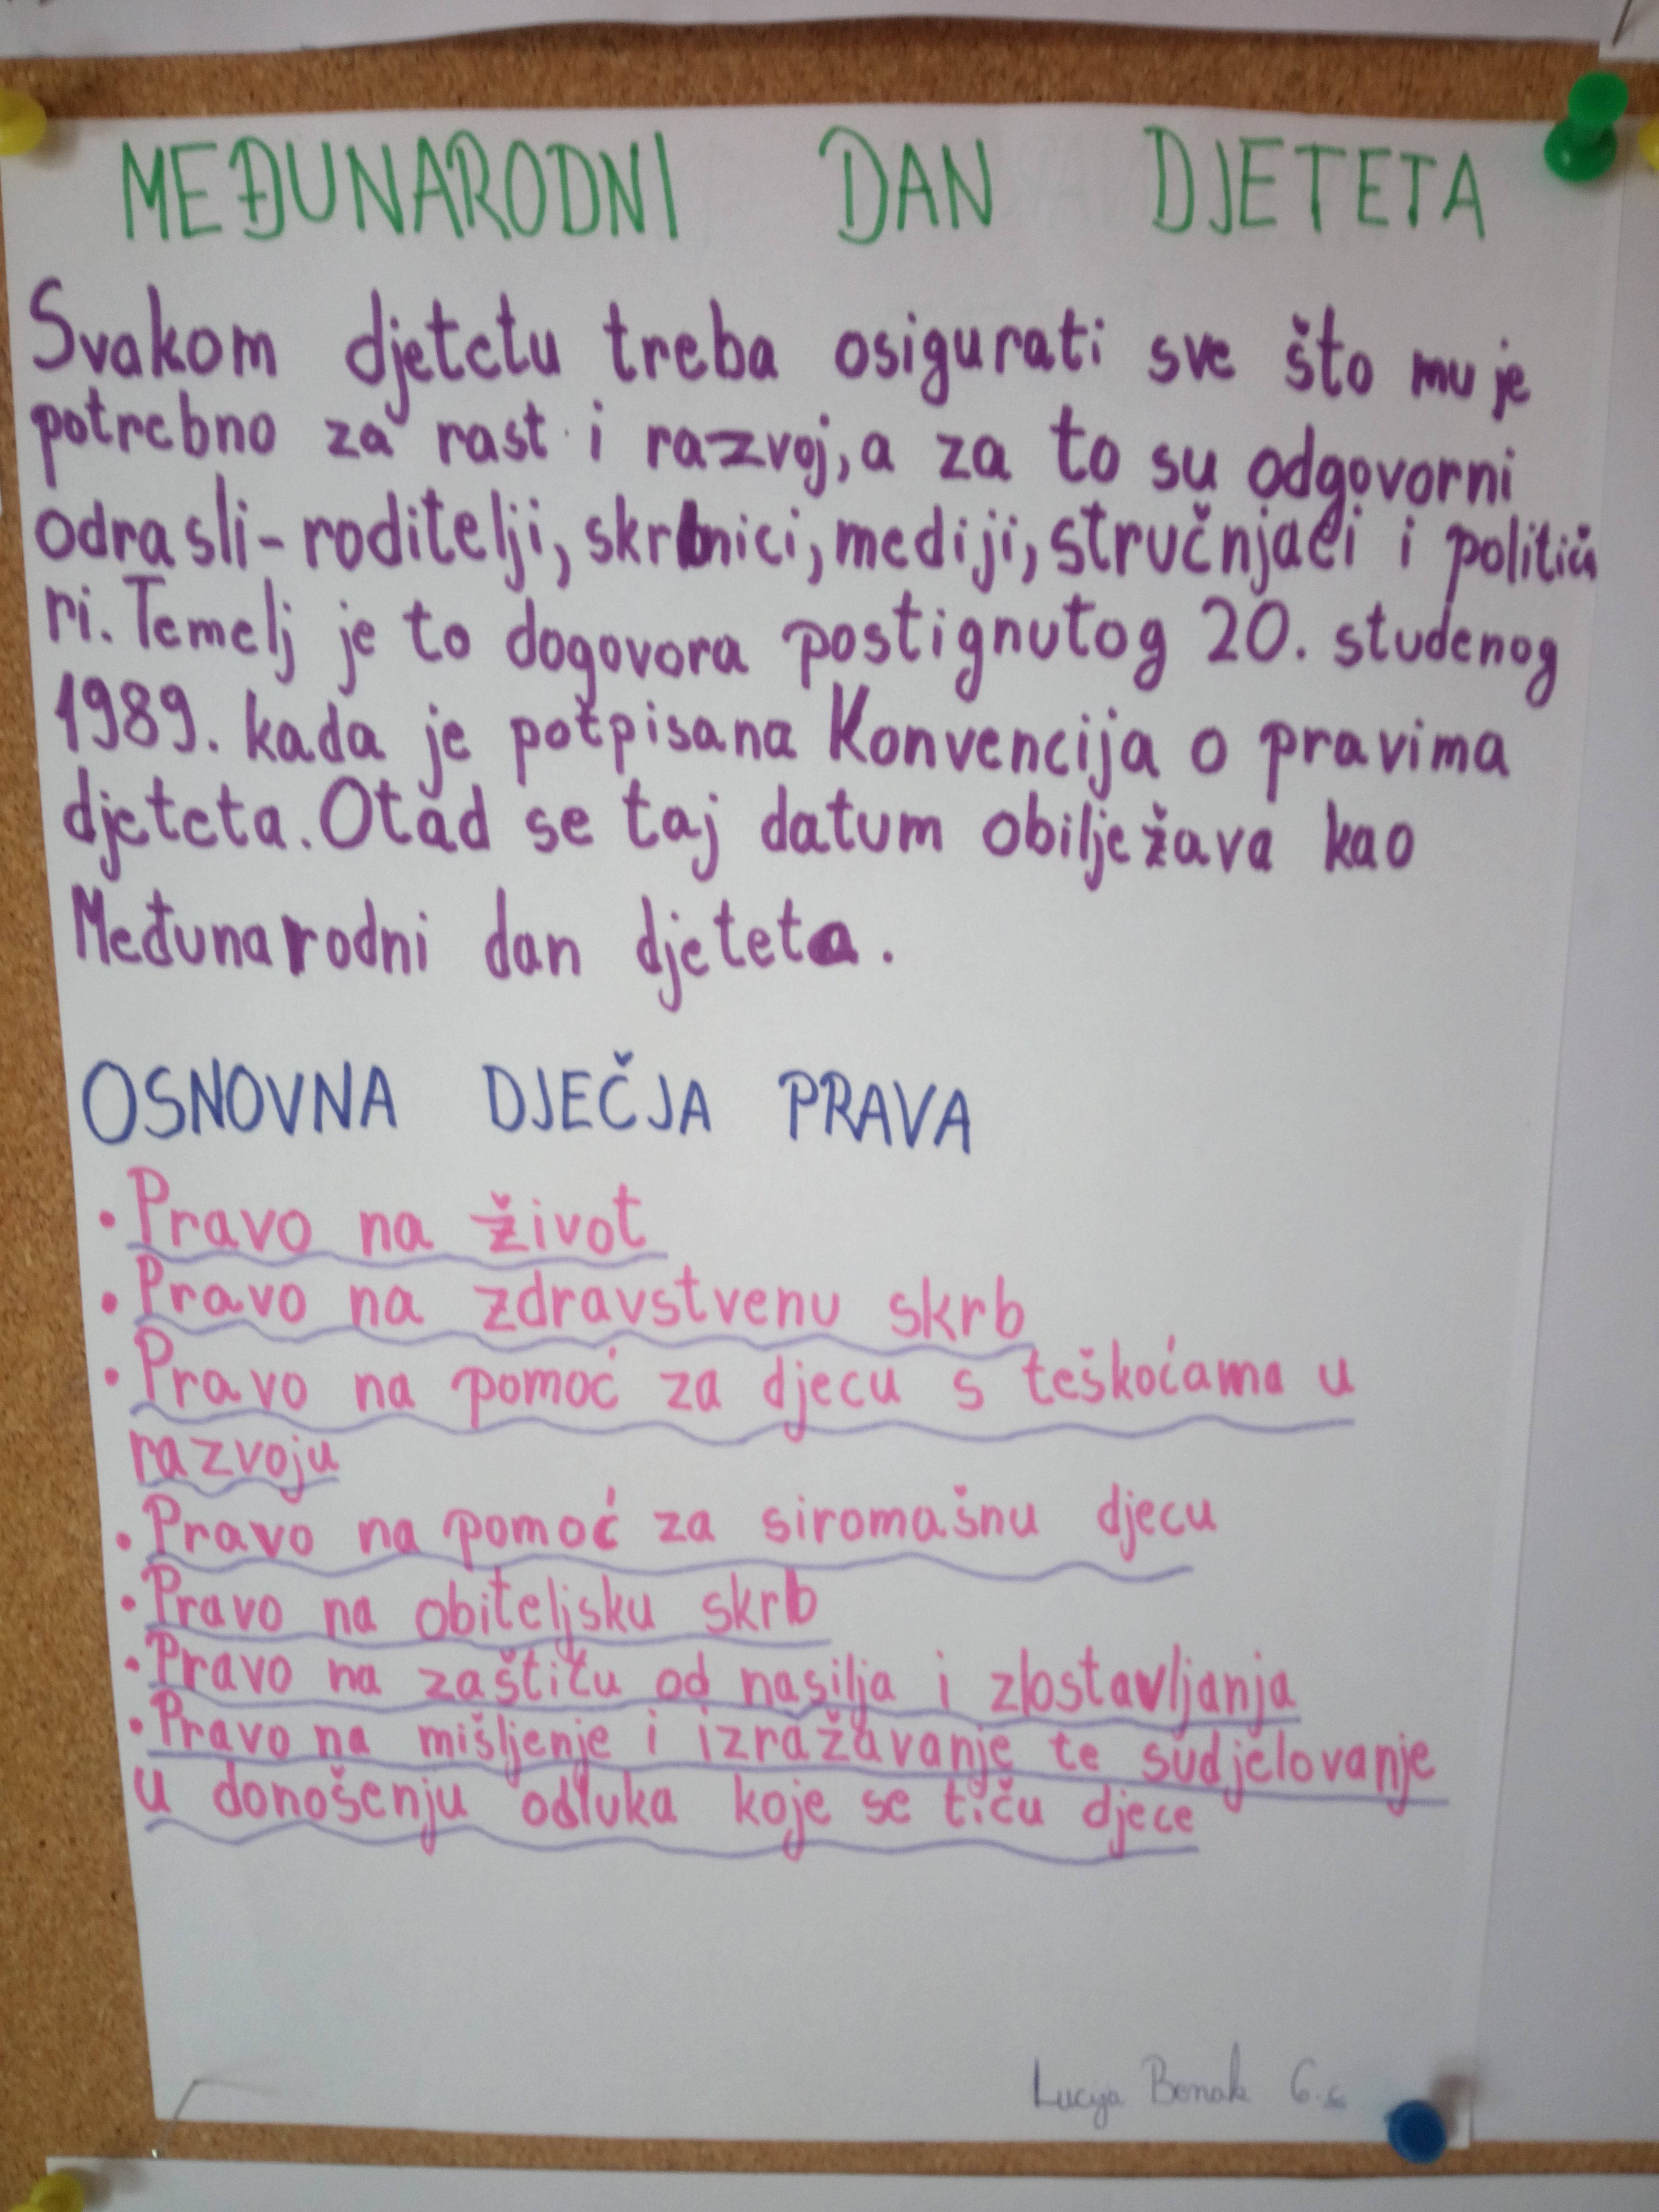 MEĐUNARODNI DAN DJETETA
Svakom djetetu treba osigurati sve što mu je
potrebno za rast i razvoj, a za to su odgovorni
odrasli-roditelji, skrbnici, mediji, stručnjaci i političa
ri. Temelj je to dogovora postignutog 20. studenog
1989. kada je potpisana Konvencija o pravima
djeteta. Otad se taj datum obilježava kao
Međunarodni dan djeteta.
OSNOVNA DJEČJA PRAVA
• Pravo na život
• Pravo na zdravstvenu skrb
• Pravo na pomoć za djecu s teškoćama u
razvoju
• Pravo na pomoć za siromašnu djecu
• Pravo na obiteljsku skrb
• Pravo na zaštitu od nasilja i zlostavljanja
• Pravo na mišljenje i izražavanje te sudjelovanje
u donošenju odluka koje se tiču djece
Lucija